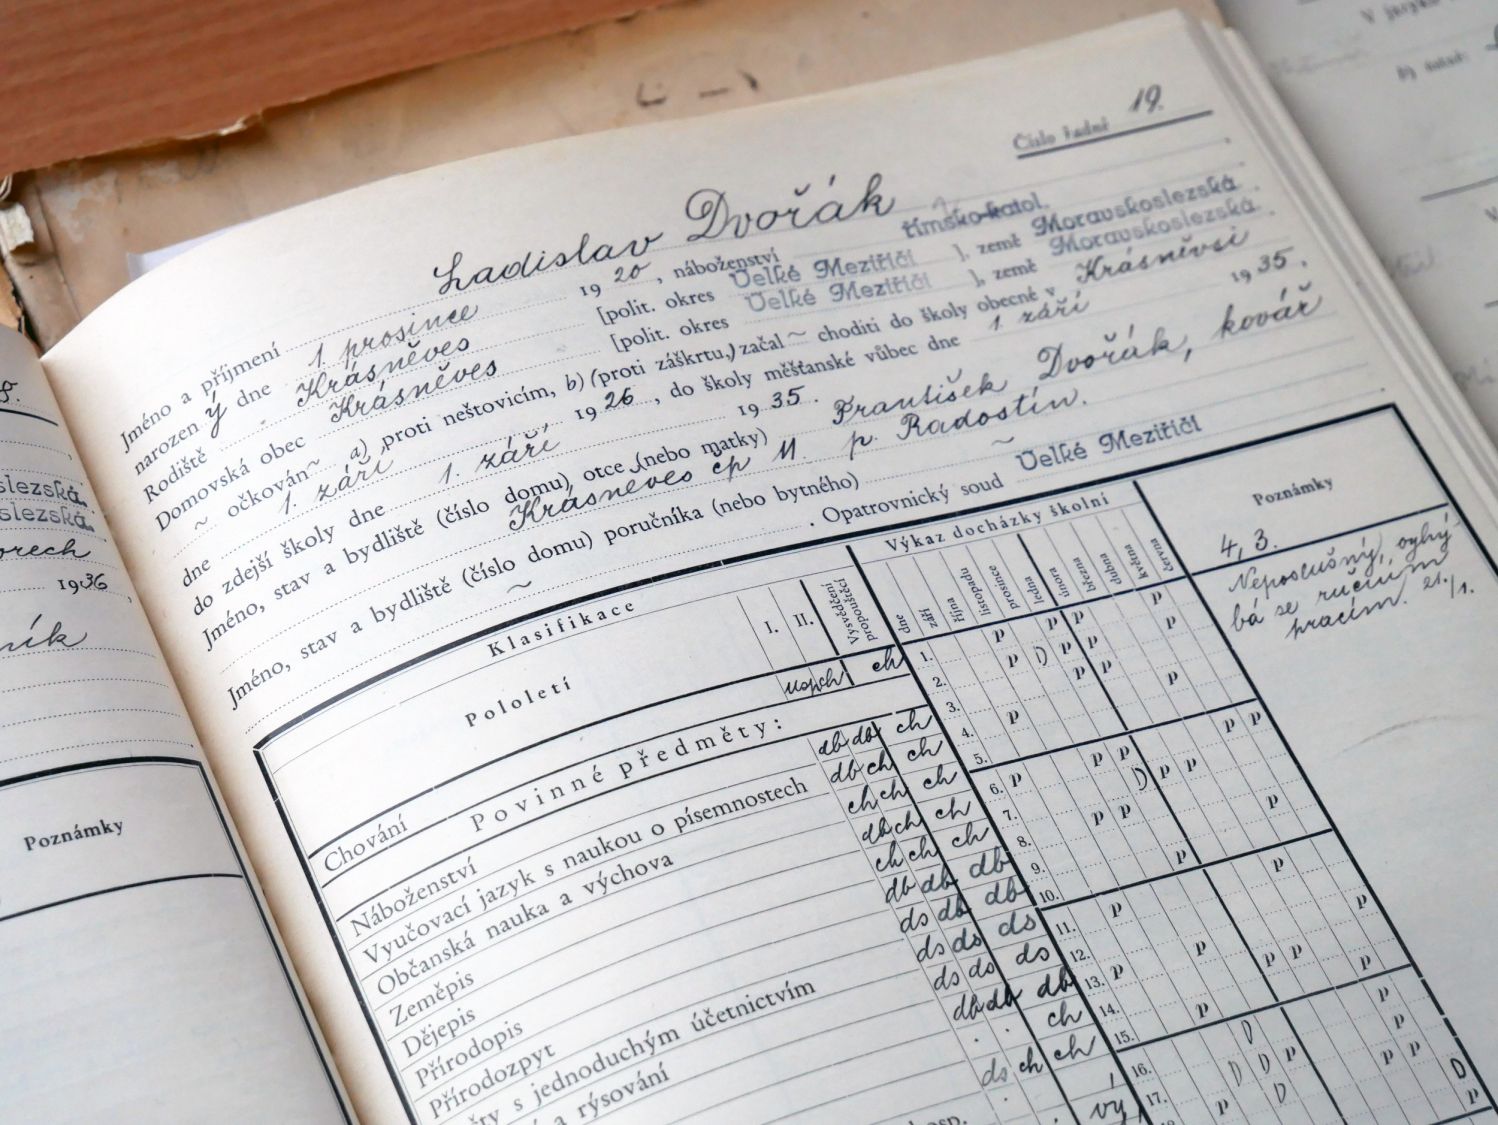 Číslo řadné 19.
Jméno a příjmení Ladislav Dvořák
narozen ý dne 1. prosince 1920, náboženství římsko-katol.
Rodiště Krásněves [polit. okres Velké Meziříčí ], země Moravskoslezská
Domovská obec Krásněves [polit. okres Velké Meziříčí ], země Moravskoslezská
~ očkován ~ a) proti neštovicím, b) (proti záškrtu,) začal ~ choditi do školy obecné v Krásněvsi
dne 1. září 1926, do školy měšťanské vůbec dne 1. září 1935.
do zdejší školy dne 1. září 1935.
Jméno, stav a bydliště (číslo domu) otce (nebo matky) František Dvořák, kovář
Krásněves čp 11. p. Radostín.
Jméno, stav a bydliště (číslo domu) poručníka (nebo bytného) ~
~ . Opatrovnický soud Velké Meziříčí
Klasifikace
Výkaz docházky školní
Poznámky
Pololetí I. II. Vysvědčení propouštěcí
dne září října listopadu prosince ledna února března dubna května června
4, 3.
Neposlušný, vyhý-
bá se ručním
pracím. 21./1.
uspch ch
Povinné předměty:
Chování db db ch
Náboženství db ch ch
Vyučovací jazyk s naukou o písemnostech ch ch ch
Občanská nauka a výchova db ch ch
Zeměpis ch ch ch
Dějepis db db db
Přírodopis ds db db
Přírodozpyt ds ds ds
s jednoduchým účetnictvím ds ds ds
a rýsování db db db
ch
ds ch ch
1. p p p p
2. p D p p p
3. p p
4. p p
5.
6. p p p p p
7. D p p
8. p p
9. p
10. p
11. p
12. p p
13. p p p
14. p p
15. p
16. D p
17. D D p p p
slezská
slezská
orech
1936
ník
Poznámky